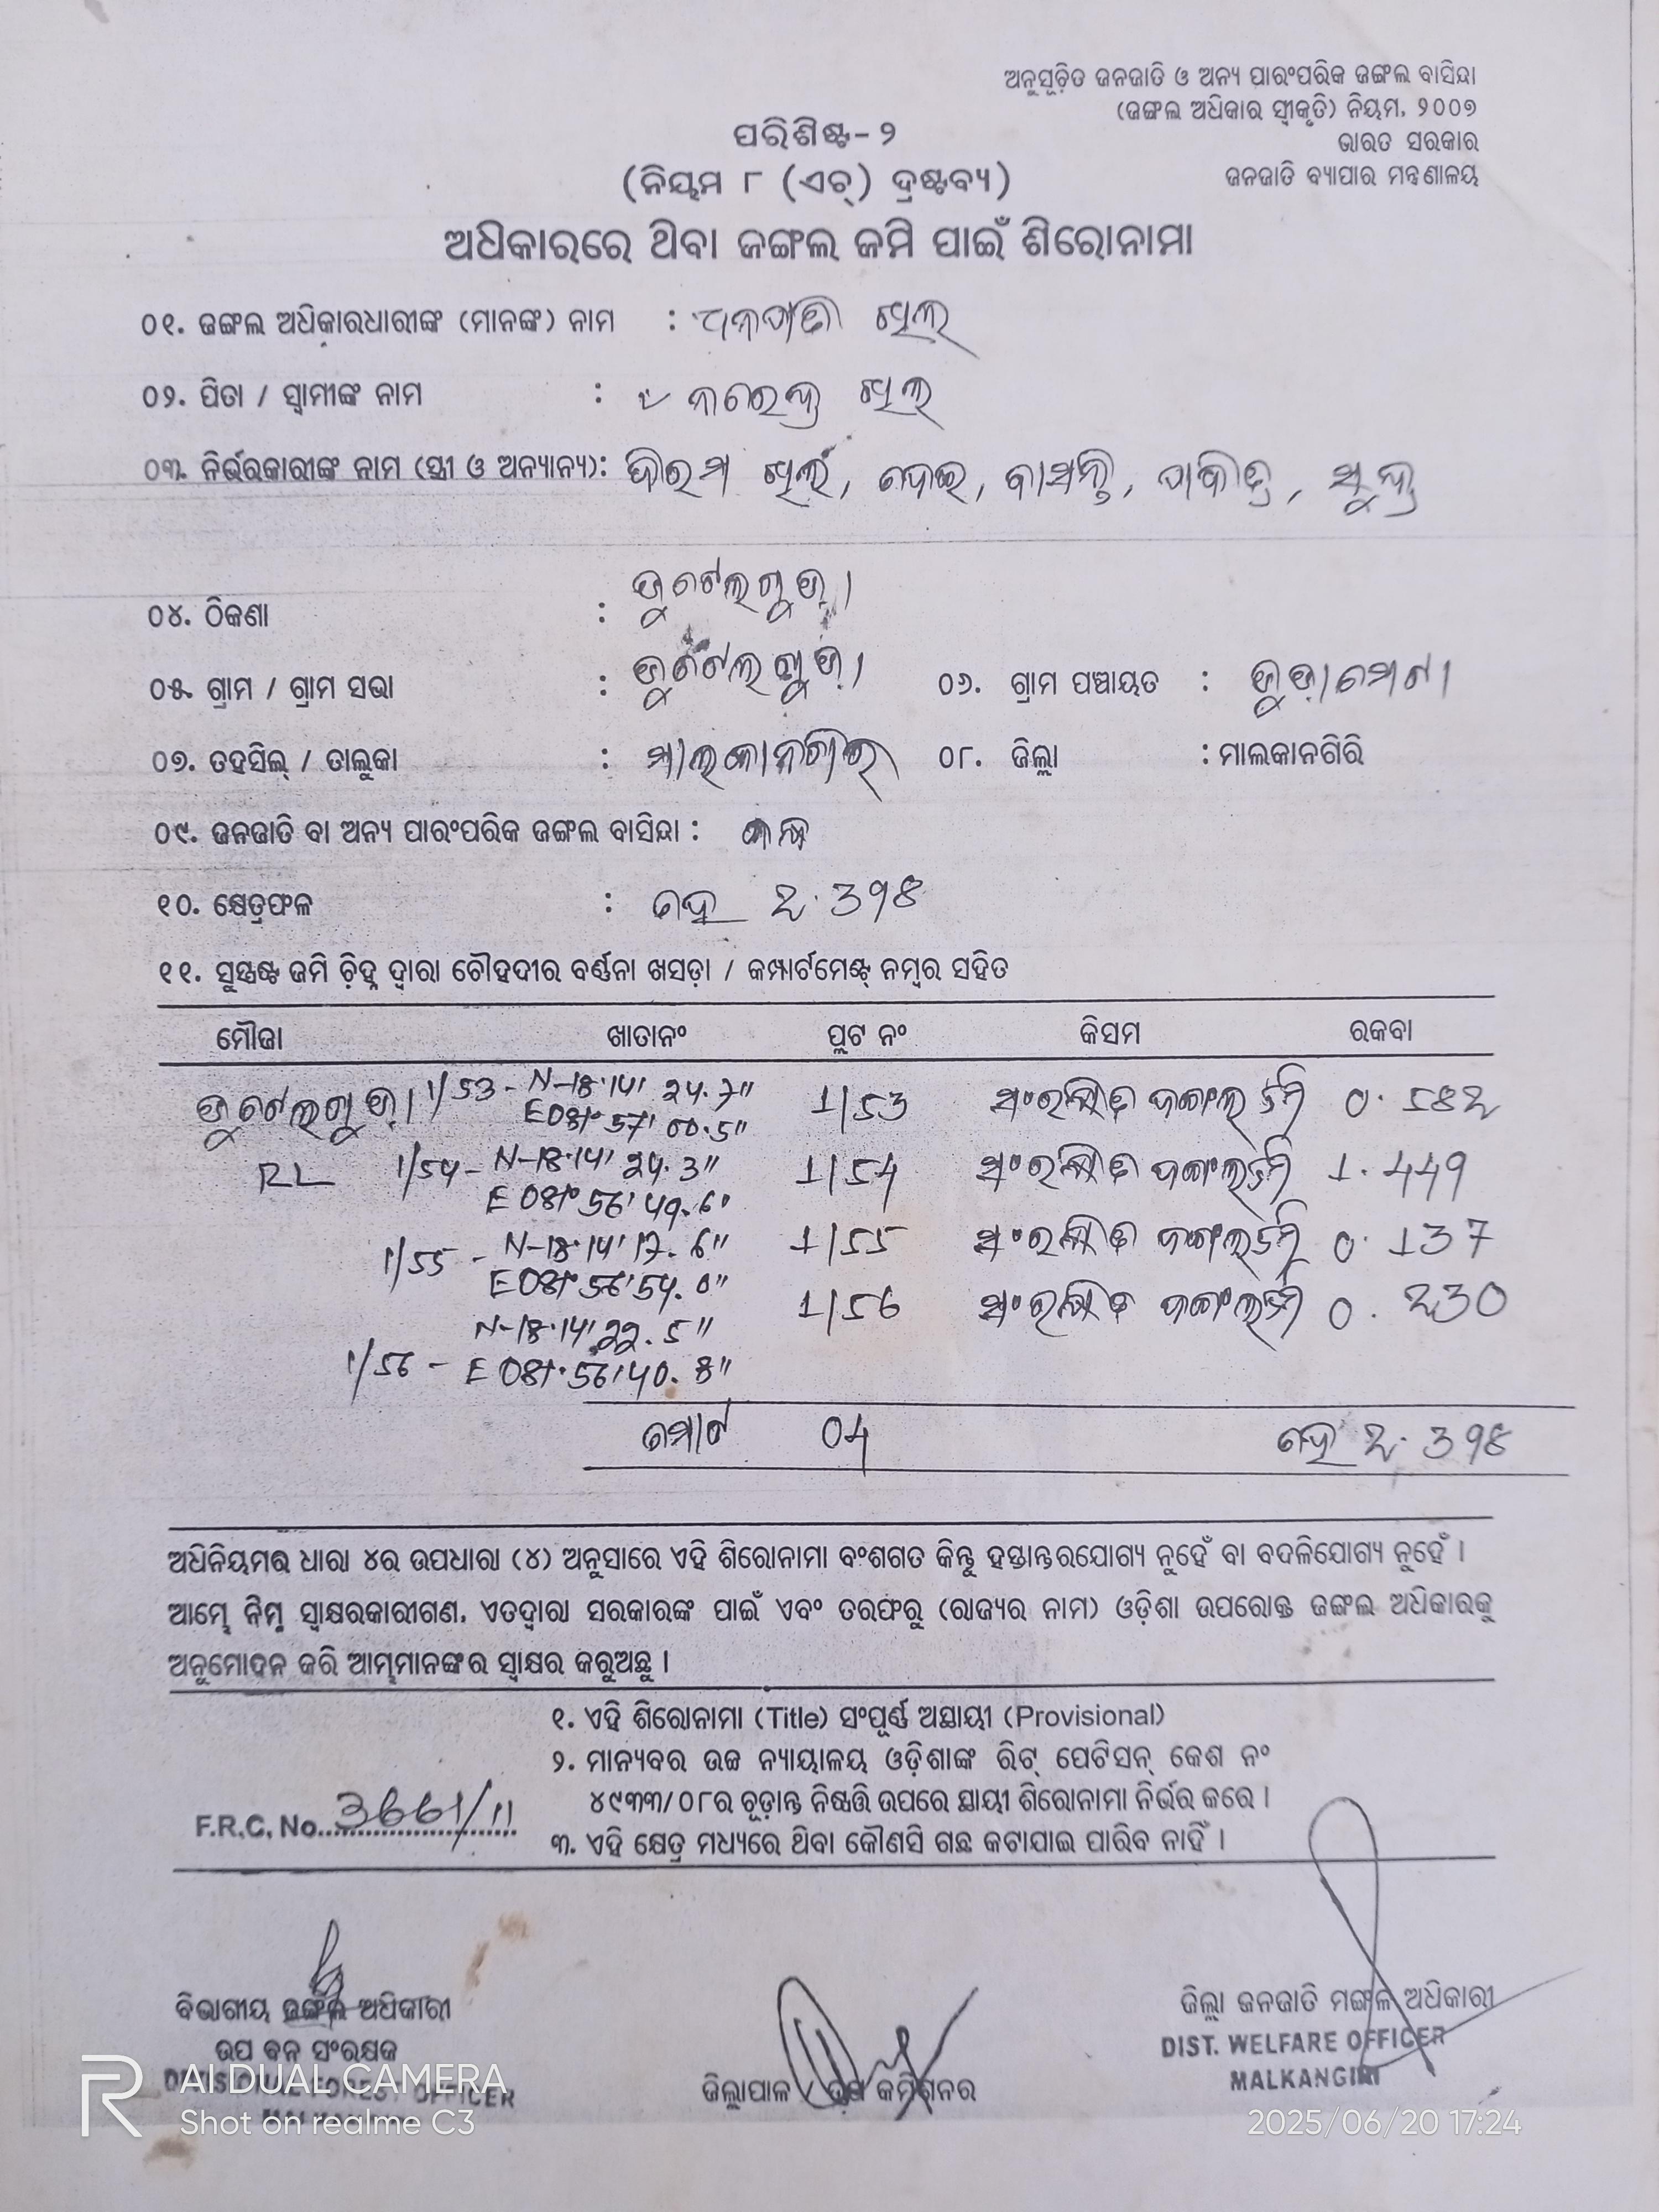 ଅନୁସୂଚିତ ଜନଜାତି ଓ ଅନ୍ୟ ପାରଂପରିକ ଜଙ୍ଗଲ ବାସିନ୍ଦା
(ଜଙ୍ଗଲ ଅଧିକାର ସ୍ୱୀକୃତି) ନିୟମ, ୨୦୦୭
ଭାରତ ସରକାର
ଜନଜାତି ବ୍ୟାପାର ମନ୍ତ୍ରଣାଳୟ
ପରିଶିଷ୍ଟ-୨
(ନିୟମ ୮ (ଏଚ୍) ଦ୍ରଷ୍ଟବ୍ୟ)
ଅଧିକାରରେ ଥିବା ଜଙ୍ଗଲ ଜମି ପାଇଁ ଶିରୋନାମା
୦୧. ଜଙ୍ଗଲ ଅଧିକାରଧାରୀଙ୍କ (ମାନଙ୍କ) ନାମ :
୦୨. ପିତା / ସ୍ୱାମୀଙ୍କ ନାମ : ନରେନ୍ଦ୍ର
୦୩. ନିର୍ଭରକାରୀଙ୍କ ନାମ (ସ୍ତ୍ରୀ ଓ ଅନ୍ୟାନ୍ୟ):
୦୪. ଠିକଣା :
୦୫. ଗ୍ରାମ / ଗ୍ରାମ ସଭା : ୦୬. ଗ୍ରାମ ପଞ୍ଚାୟତ :
୦୭. ତହସିଲ୍ / ତାଲୁକା : ମାଲକାନଗିରି ୦୮. ଜିଲ୍ଲା : ମାଲକାନଗିରି
୦୯. ଜନଜାତି ବା ଅନ୍ୟ ପାରଂପରିକ ଜଙ୍ଗଲ ବାସିନ୍ଦା :
୧୦. କ୍ଷେତ୍ରଫଳ : ହେ ୨.୩୯୫
୧୧. ସୁସ୍ପଷ୍ଟ ଜମି ଚିହ୍ନ ଦ୍ୱାରା ଚୌହଦୀର ବର୍ଣ୍ଣନା ଖସଡ଼ା / କମ୍ପାର୍ଟମେଣ୍ଟ୍ ନମ୍ବର ସହିତ
ମୌଜା ଖାତାନଂ ପ୍ଲଟ ନଂ କିସମ ରକବା
1/53 - N-18°14' 24.7" 1/53 ସଂରକ୍ଷିତ ଜଙ୍ଗଲ ଜମି 0.582
E 081° 57' 00.5"
RL 1/54 - N-18°14' 24.3" 1/54 ସଂରକ୍ଷିତ ଜଙ୍ଗଲ ଜମି 1.449
E 081° 56' 49.6"
1/55 - N-18°14' 17.6" 1/55 ସଂରକ୍ଷିତ ଜଙ୍ଗଲ ଜମି 0.137
E 081° 56' 54.0"
N-18°14' 22.5" 1/56 ସଂରକ୍ଷିତ ଜଙ୍ଗଲ ଜମି 0.230
1/56 - E 081° 56' 40.8"
ମୋଟ 04 ହେ ୨.୩୯୫
ଅଧିନିୟମର ଧାରା ୪ର ଉପଧାରା (୪) ଅନୁସାରେ ଏହି ଶିରୋନାମା ବଂଶଗତ କିନ୍ତୁ ହସ୍ତାନ୍ତରଯୋଗ୍ୟ ନୁହେଁ ବା ବଦଳିଯୋଗ୍ୟ ନୁହେଁ ।
ଆମ୍ଭେ ନିମ୍ନ ସ୍ୱାକ୍ଷରକାରୀଗଣ, ଏତଦ୍ୱାରା ସରକାରଙ୍କ ପାଇଁ ଏବଂ ତରଫରୁ (ରାଜ୍ୟର ନାମ) ଓଡ଼ିଶା ଉପରୋକ୍ତ ଜଙ୍ଗଲ ଅଧିକାରକୁ
ଅନୁମୋଦନ କରି ଆମ୍ଭମାନଙ୍କର ସ୍ୱାକ୍ଷର କରୁଅଛୁ ।
୧. ଏହି ଶିରୋନାମା (Title) ସଂପୂର୍ଣ୍ଣ ଅସ୍ଥାୟୀ (Provisional)
୨. ମାନ୍ୟବର ଉଚ୍ଚ ନ୍ୟାୟାଳୟ ଓଡ଼ିଶାଙ୍କ ରିଟ୍ ପେଟିସନ୍ କେଶ ନଂ
୪୯୩୩/୦୮ର ଚୂଡ଼ାନ୍ତ ନିଷ୍ପତ୍ତି ଉପରେ ସ୍ଥାୟୀ ଶିରୋନାମା ନିର୍ଭର କରେ ।
F.R.C. No. 3661/11
୩. ଏହି କ୍ଷେତ୍ର ମଧ୍ୟରେ ଥିବା କୌଣସି ଗଛ କଟାଯାଇ ପାରିବ ନାହିଁ ।
ବିଭାଗୀୟ ଜଙ୍ଗଲ ଅଧିକାରୀ
ଉପ ବନ ସଂରକ୍ଷକ
DIVISIONAL FOREST OFFICER
ଜିଲ୍ଲାପାଳ / ଉପ କମିଶନର
ଜିଲ୍ଲା ଜନଜାତି ମଙ୍ଗଳ ଅଧିକାରୀ
DIST. WELFARE OFFICER
MALKANGIRI
AI DUAL CAMERA
Shot on realme C3
2025/06/20 17:24